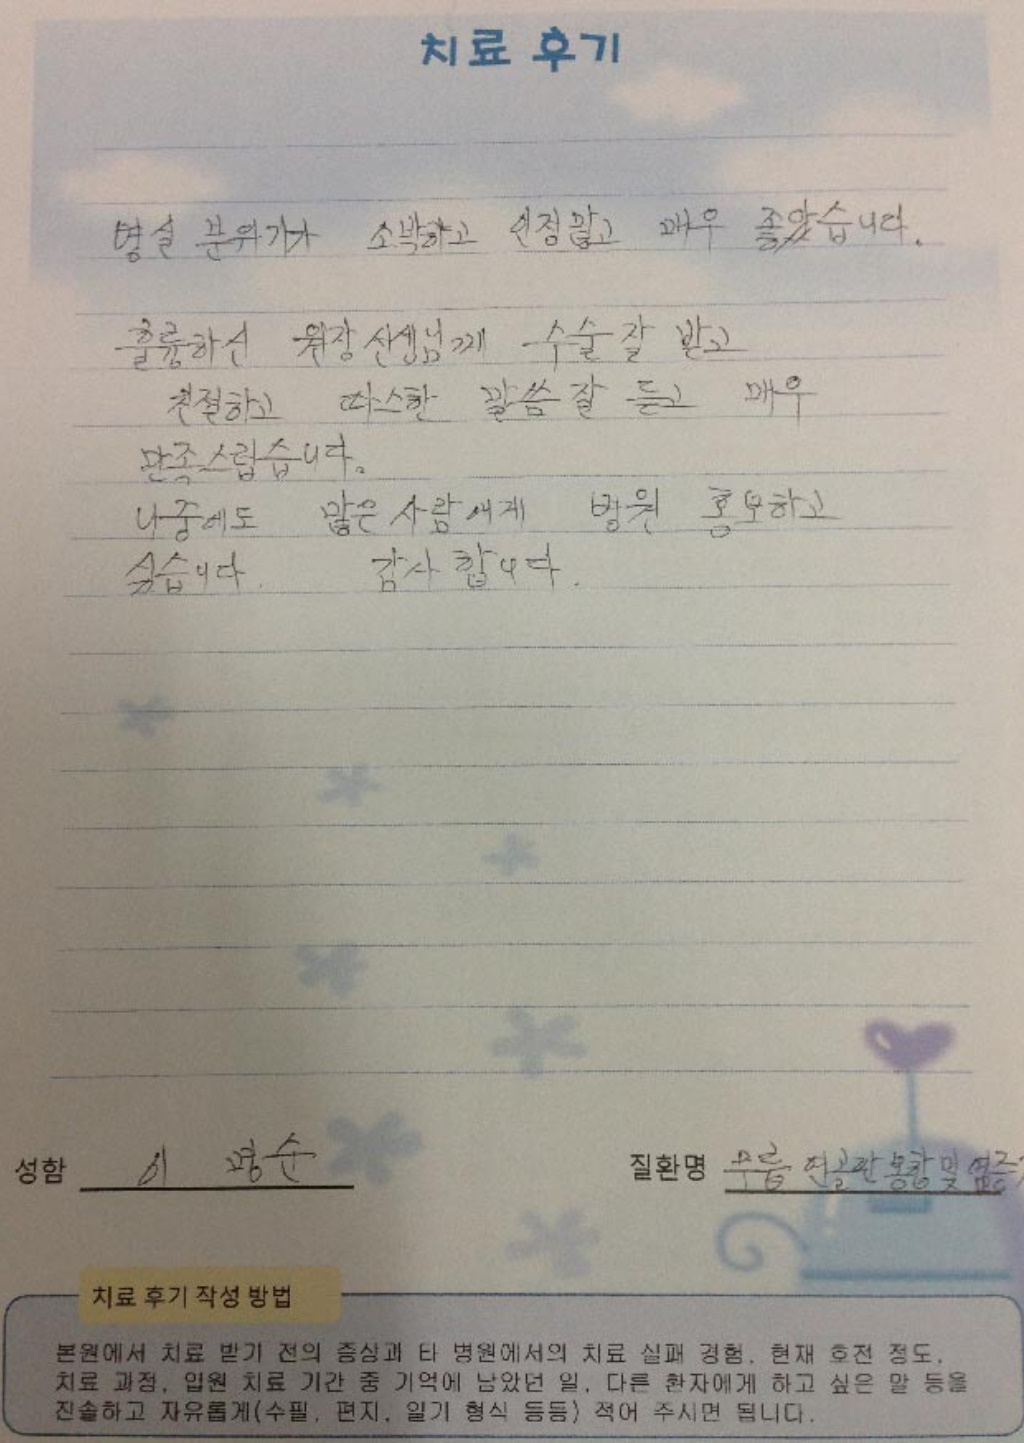 치료 후기
병실 분위기가 소박하고 인정많고 매우 좋았습니다.
훌륭하신 원장선생님께 수술 잘 받고
친절하고 따스한 말씀 잘 듣고 매우
만족스럽습니다.
나중에도 많은 사람에게 병원 홍보하고
싶습니다. 감사합니다.
성함 이 명순 질환명 무릎 연골판 봉합 및 염증
치료 후기 작성 방법
본원에서 치료 받기 전의 증상과 타 병원에서의 치료 실패 경험, 현재 호전 정도,
치료 과정, 입원 치료 기간 중 기억에 남았던 일, 다른 환자에게 하고 싶은 말 등을
진솔하고 자유롭게(수필, 편지, 일기 형식 등등) 적어 주시면 됩니다.